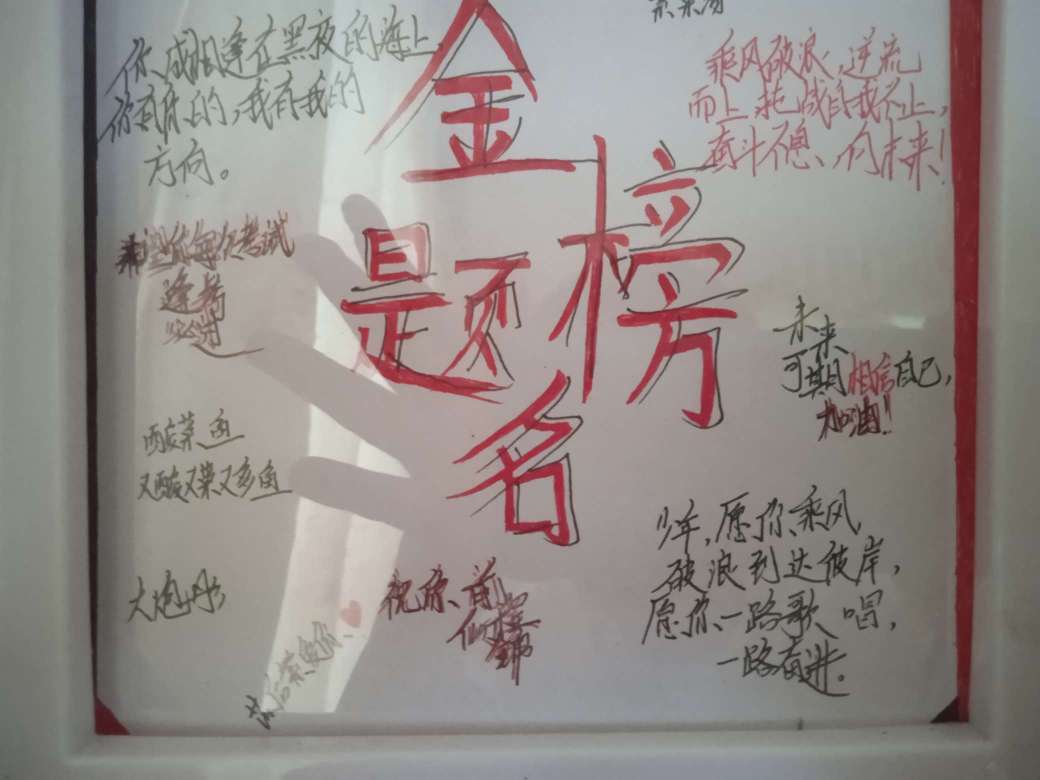 金
榜
题
名
你、我相逢在黑夜的海上
你有你的，我有我的
方向。
乘风破浪，逆流
而上，挑战自我不止，
奋斗不息、向未来！
每次考试
逢考
必过
未来
可期相信自己，
加油！
酸菜鱼
又酸又菜又多鱼
少年，愿你、乘风
破浪到达彼岸，
愿你、一路歌唱，
一路奋进。
祝你、前
似锦